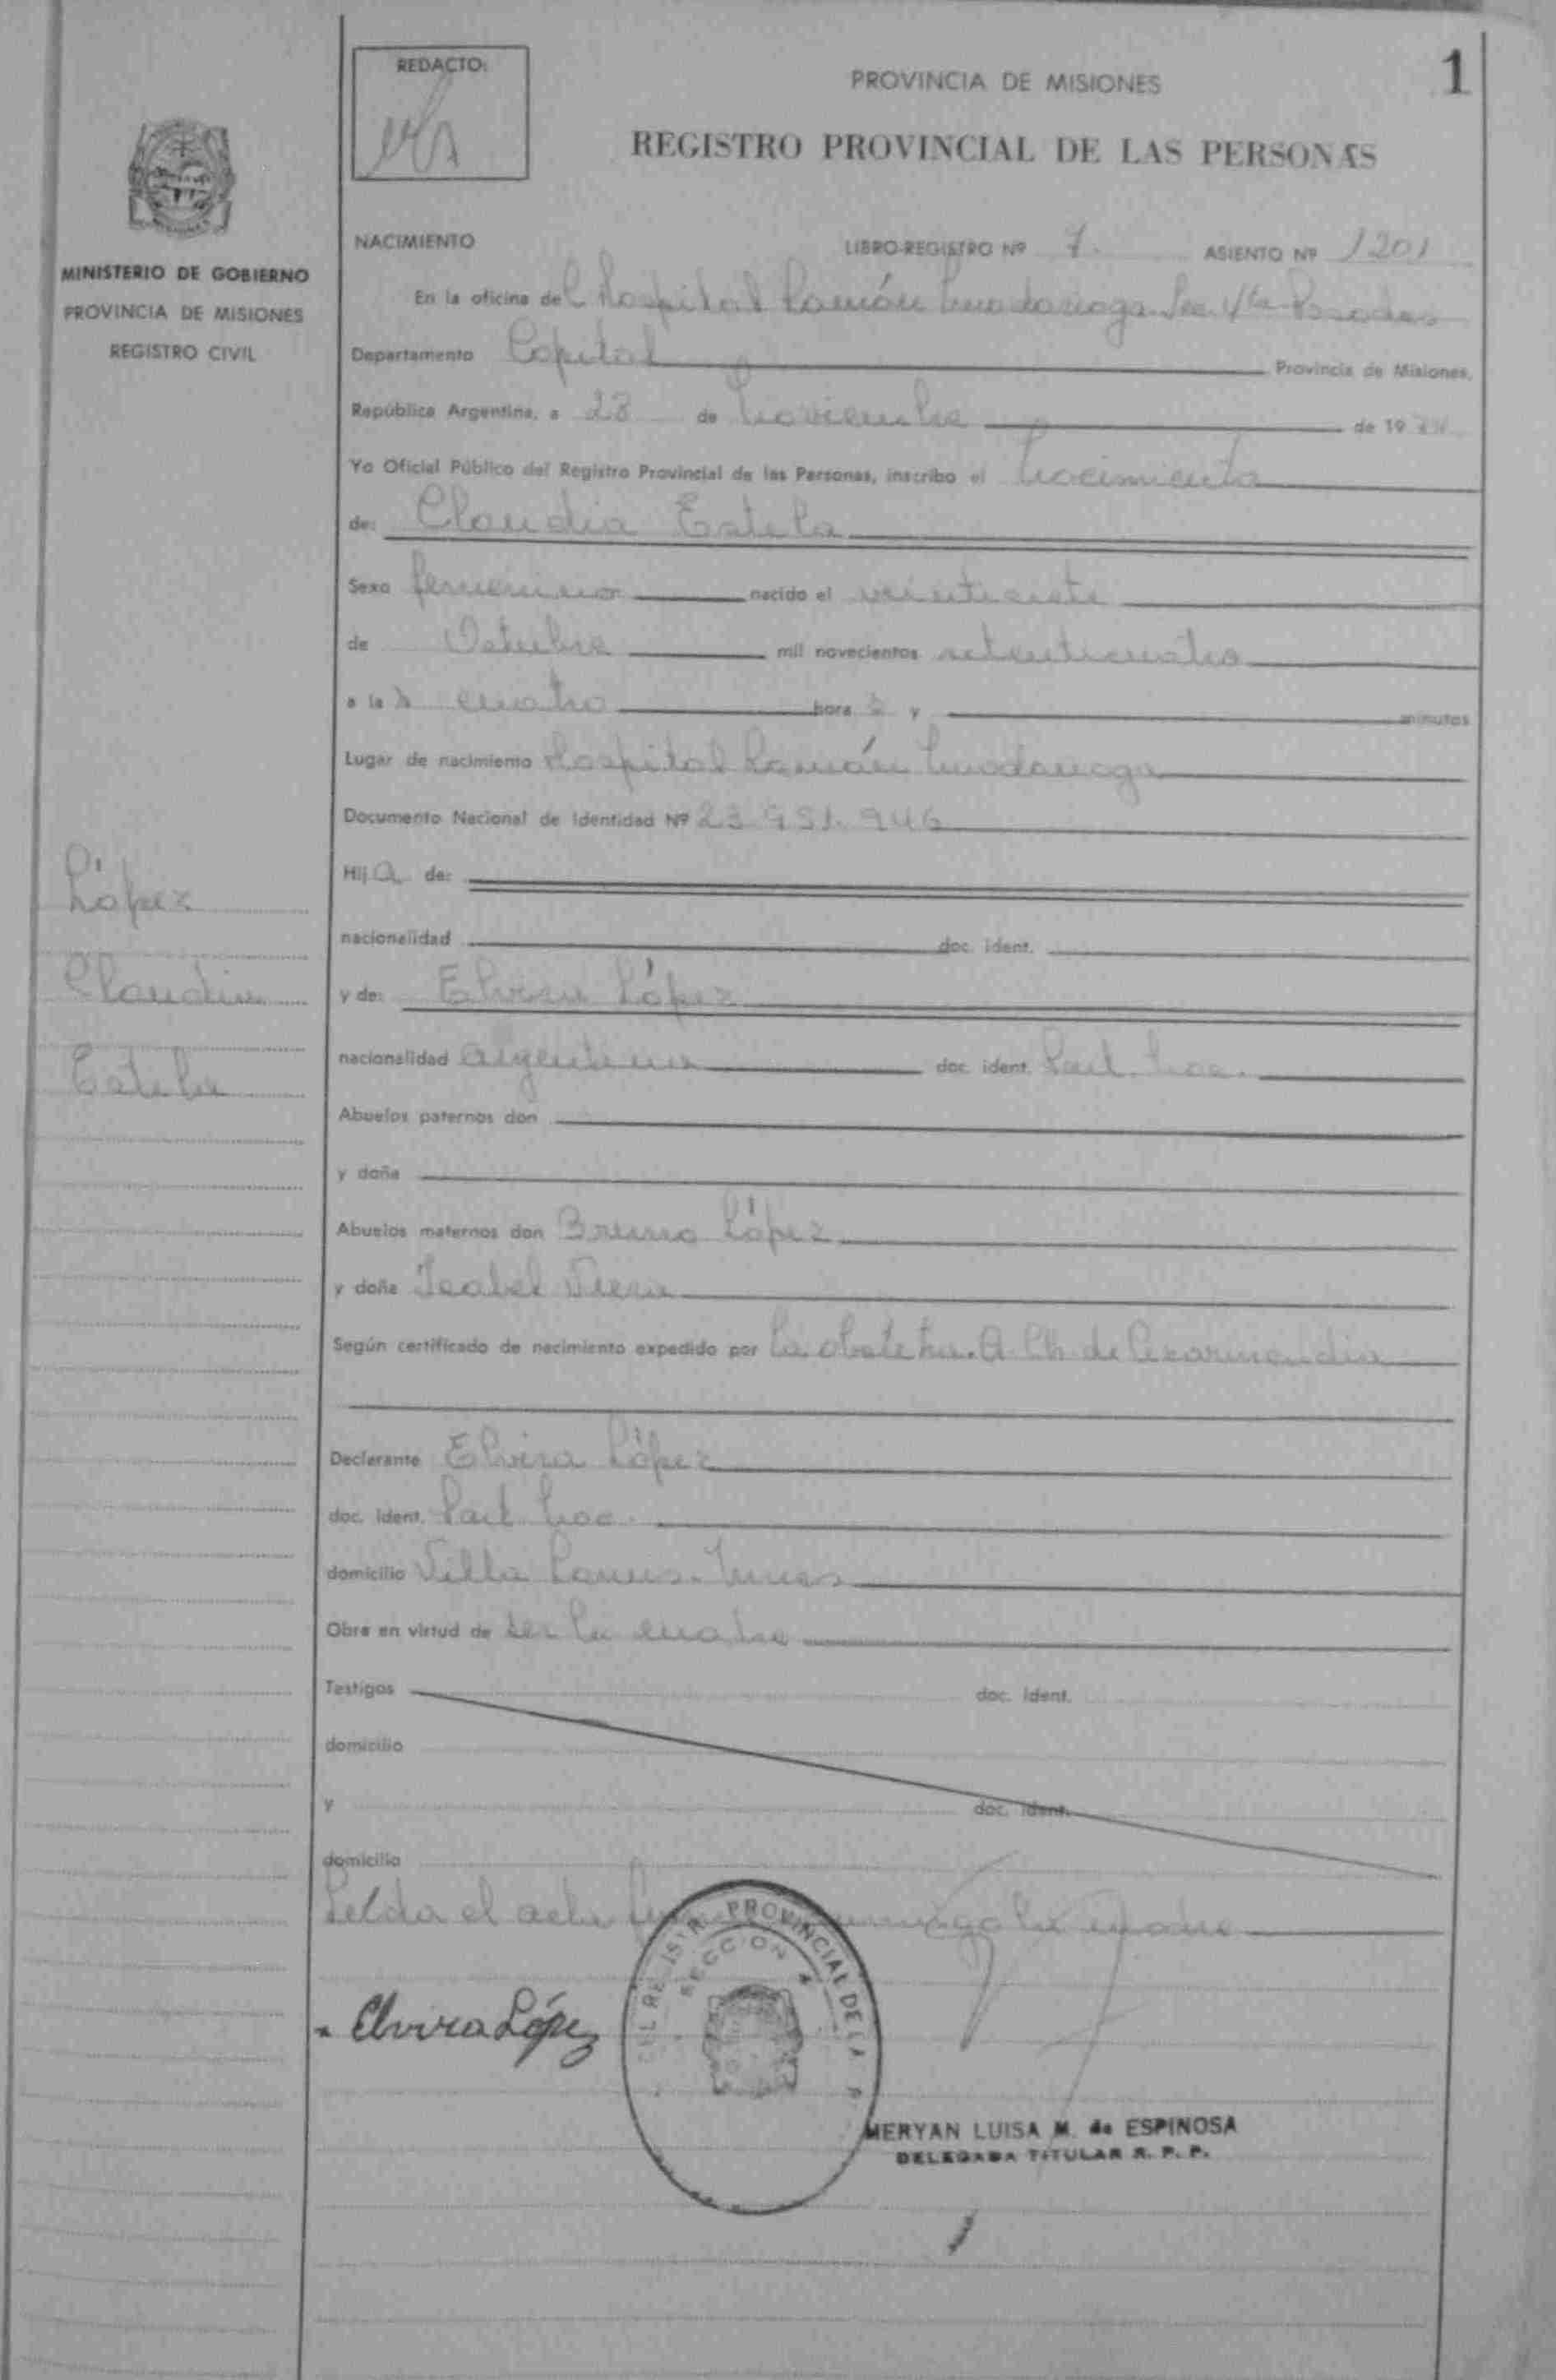 REDACTO:
PROVINCIA DE MISIONES
1
REGISTRO PROVINCIAL DE LAS PERSONAS
MINISTERIO DE GOBIERNO
PROVINCIA DE MISIONES
REGISTRO CIVIL
López
Claudia
Estela
NACIMIENTO LIBRO-REGISTRO Nº 7. ASIENTO Nº 1201
En la oficina del Hospital Ramón Madariaga Sec. 4ta Posadas
Departamento Capital Provincia de Misiones,
República Argentina, a 28 de Noviembre de 19
Yo Oficial Público del Registro Provincial de las Personas, inscribo el Nacimiento
de: Claudia Estela
Sexo femenino nacido el veintisiete
de Octubre mil novecientos setenticuatro
a las cuatro horas y minutos
Lugar de nacimiento Hospital Ramón Madariaga
Documento Nacional de Identidad Nº 23.951.946
Hija de:
nacionalidad doc. ident.
y de: Elvira López
nacionalidad argentina doc. ident. Part. Nac.
Abuelos paternos don
y doña
Abuelos maternos don Bruno López
y doña Isabel Viera
Según certificado de nacimiento expedido por la obstetra. A. Ch. de
Declarante Elvira López
doc. ident. Part. Nac.
domicilio Villa Lanus.
Obra en virtud de ser la madre
Testigos doc. ident.
domicilio
y doc. ident.
domicilio
Leída el acta la madre
Elvira López
REGISTR PROVINCIAL DE LA
SECCION 4
MERYAN LUISA M. de ESPINOSA
DELEGADA TITULAR R. P. P.